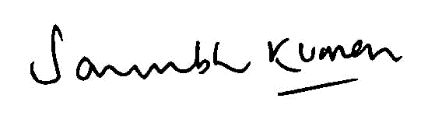 Saurabh Kumar